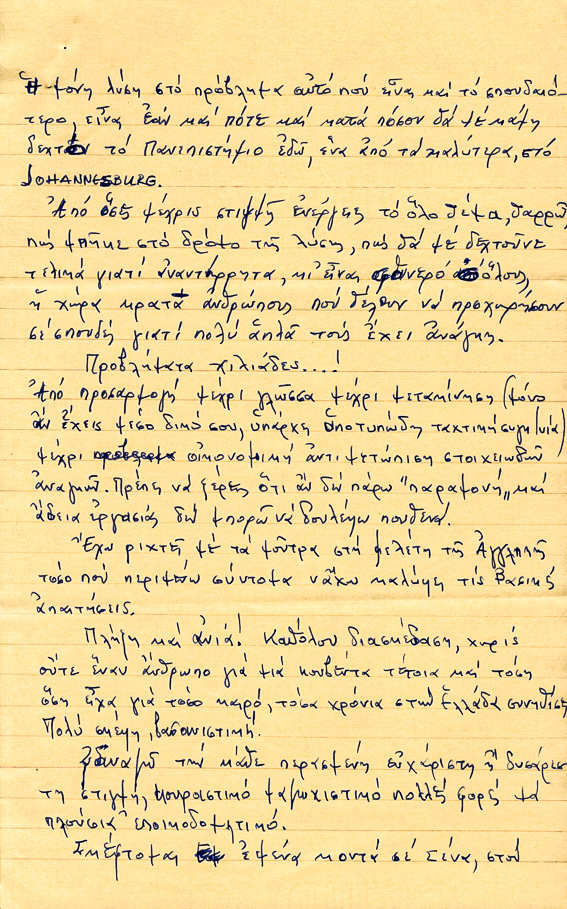 Ἡ μόνη λύση στό πρόβλημα αὐτό πού εἶναι καί τό σπουδαιό-
τερο, εἶναι ἐάν καί πότε καί κατά πόσον θά μέ κάμη
δεχτόν τό Πανεπιστήμιο ἐδῶ, ἕνα ἀπό τά καλύτερα, στό
JOHANNESBURG.
Ἀπό ὅτι μέχρις στιγμῆς ἐνέργησα τό ὅλο θέμα, θαρρῶ,
πώς μπῆκε στό δρόμο τῆς λύσης, πώς θά μέ δεχτοῦνε
τελικά γιατί ἀναντίρρητα, κι' εἶναι φανερό σ' ὅλους,
ἡ χώρα κρατᾶ ἀνθρώπους πού θέλουν νά προχωρήσουν
σέ σπουδές γιατί πολύ ἁπλά τούς ἔχει ἀνάγκη.
Προβλήματα χιλιάδες....!
Ἀπό προσαρμογή μέχρι γλῶσσα μέχρι μετακίνηση (μόνο
ἄν ἔχεις μέσο δικό σου, ὑπάρχει ὑποτυπώδη τακτική συγκ/νία)
μέχρι οἰκονομική ἀντιμετώπιση στοιχειωδῶν
ἀναγκῶν. Πρέπει νά ξέρεις ὅτι ἄν δέν πάρω "παραμονή" καί
ἄδεια ἐργασίας δέν μπορῶ νά δουλέψω πουθενά.
Ἔχω ριχτεῖ μέ τά μοῦτρα στή μελέτη τῆς Ἀγγλικῆς
τόσο πού περιμένω σύντομα νἄχω καλύψει τίς βασικές
ἀπαιτήσεις.
Πλήξη καί ἀνία! Καθόλου διασκέδαση, χωρίς
οὔτε ἕναν ἄνθρωπο γιά μιά κουβέντα τέτοια καί τόση
ὅση εἶχα γιά τόσο καιρό, τόσα χρόνια στήν Ἑλλάδα συνηθίσει
Πολύ σκέψη, βασανιστική.
Ξαναζῶ τήν κάθε περασμένη εὐχάριστη ἤ δυσάρεσ-
τη στιγμή, κουραστικό μαζωχιστικό πολλές φορές μά
πλούσια ἐποικοδομητικό.
Σκέφτομαι ἐμένα κοντά σέ Σένα, στοῦ